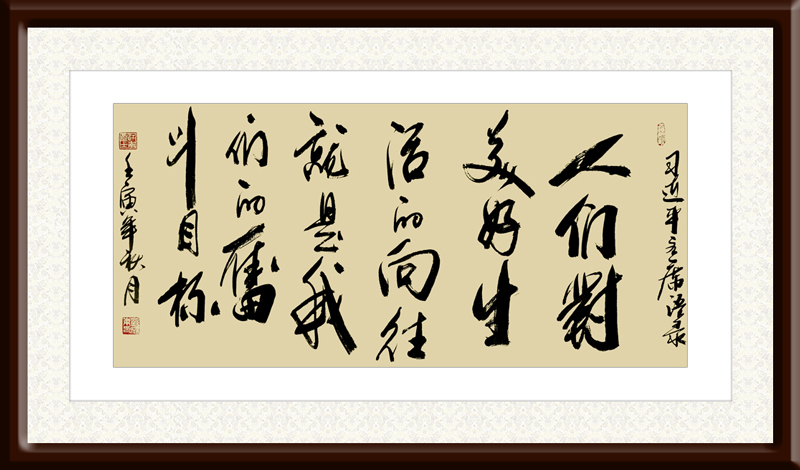 习近平主席语录
人们對
美好生
活的向往
就是我
们的奮
斗目标
壬寅年秋月